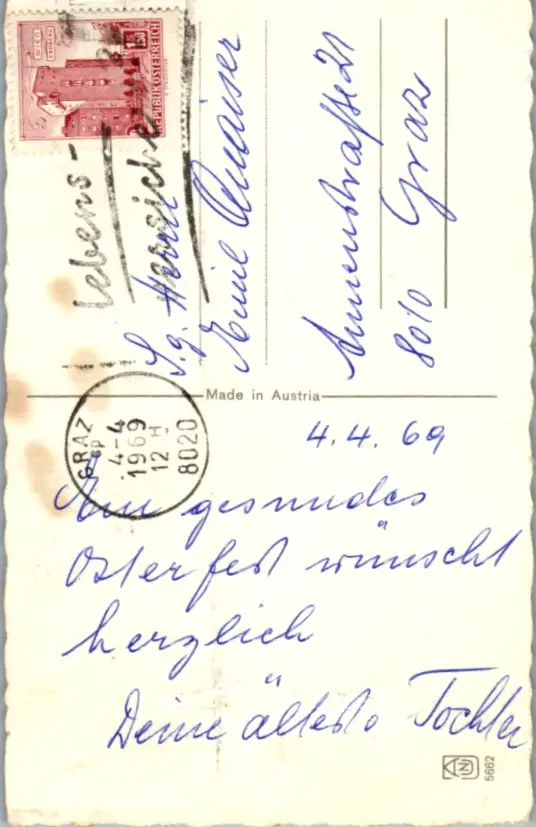 REPUBLIK ÖSTERREICH
Lebens-
S. g. Herrn
Emil Amaiser
Annenstraße 21
8010 Graz
Made in Austria
GRAZ
4-4
1969
12 H
8020
4. 4. 69
Ein gesundes
Osterfest wünscht
herzlich
Deine älteste Tochter
5662